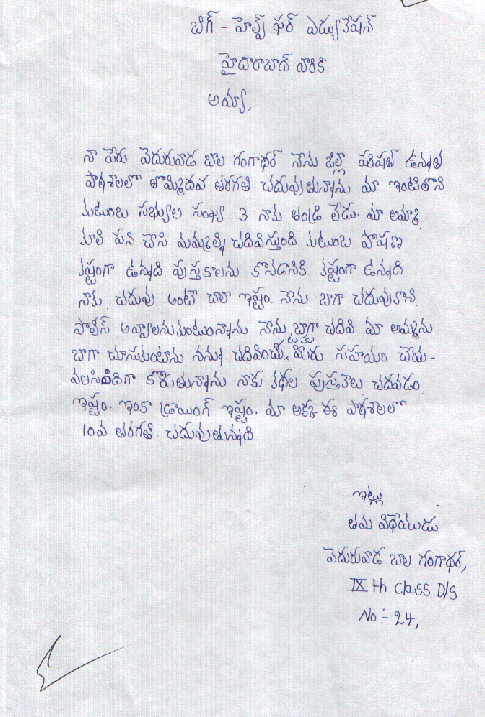 బిగ్ - హెల్ప్ ఫర్ ఎడ్యుకేషన్
హైదరాబాద్ వారికి
అమ్మా,
నా పేరు వెదురువాడ బాల గంగాధర్ నేను జిల్లా పరిషత్ ఉన్నత
పాఠశాలలో తొమ్మిదవ తరగతి చదువుతున్నాను మా ఇంటిలోని
కుటుంబ సభ్యుల సంఖ్య 3 నాకు తండ్రి లేడు. మా అమ్మ
కూలి పని చేసి మమ్మల్ని చదివిస్తుంది కుటుంబ పోషణ
కష్టంగా ఉన్నది పుస్తకాలను కొనడానికి కష్టంగా ఉన్నది
నాకు చదువు అంటే చాలా ఇష్టం. నేను బాగా చదువుకొని
పోలీస్ అవ్వాలనుకుంటున్నాను నేను బాగా చదివి మా అమ్మను
బాగా చూసుకుంటాను నన్ను చదివించి, మీరు సహాయం చేయ-
వలసిందిగా కోరుతున్నాను నాకు కథల పుస్తకాలు చదవడం
ఇష్టం. ఇంకా డ్రాయింగ్ ఇష్టం. మా అక్క ఈ పాఠశాలలో
10వ తరగతి చదువుతున్నది
ఇట్లు
తమ విధేయుడు
వెదురువాడ బాల గంగాధర్,
IXth class D/S
No:- 24,